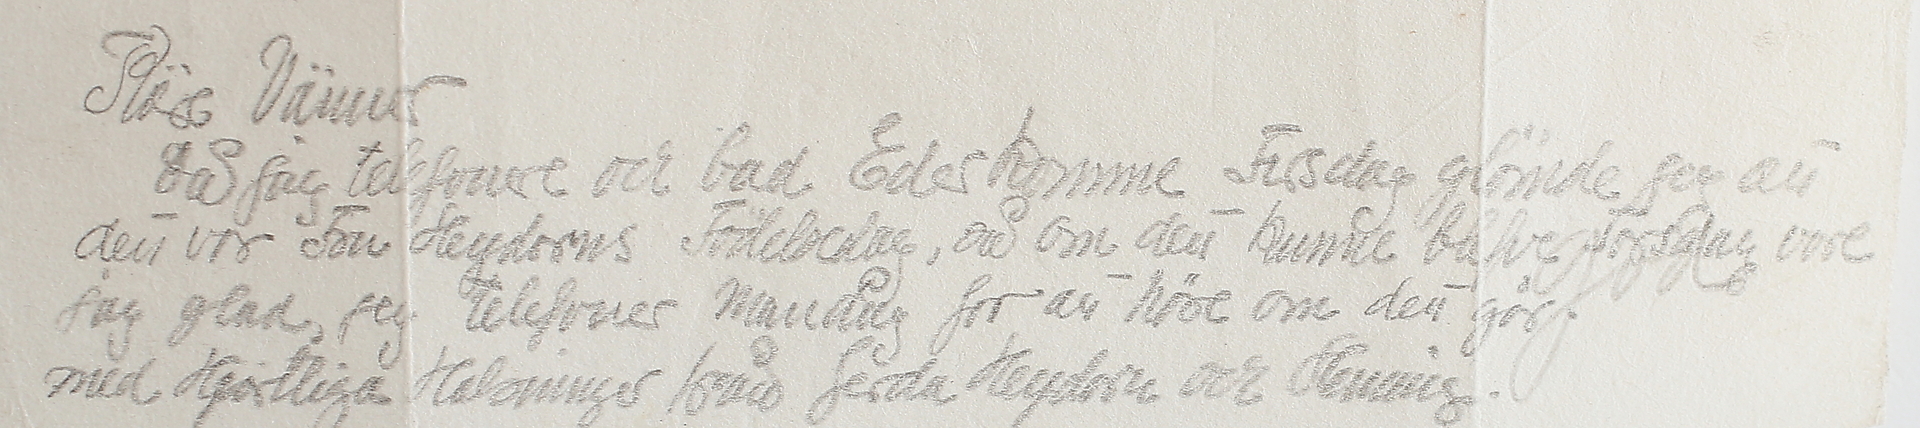 Käre Vänner
Då jag telefonere och bad Eder komme Tirsdag glömde jeg att
dett var Fru Heydorns Födelsedag, så om dett kunne blive Torsdag vore
jag glad, jeg telefoner Mandag for att höre om dett går,
med Hjärtliga Halsninger från Gerda Heydorn och Flemming.